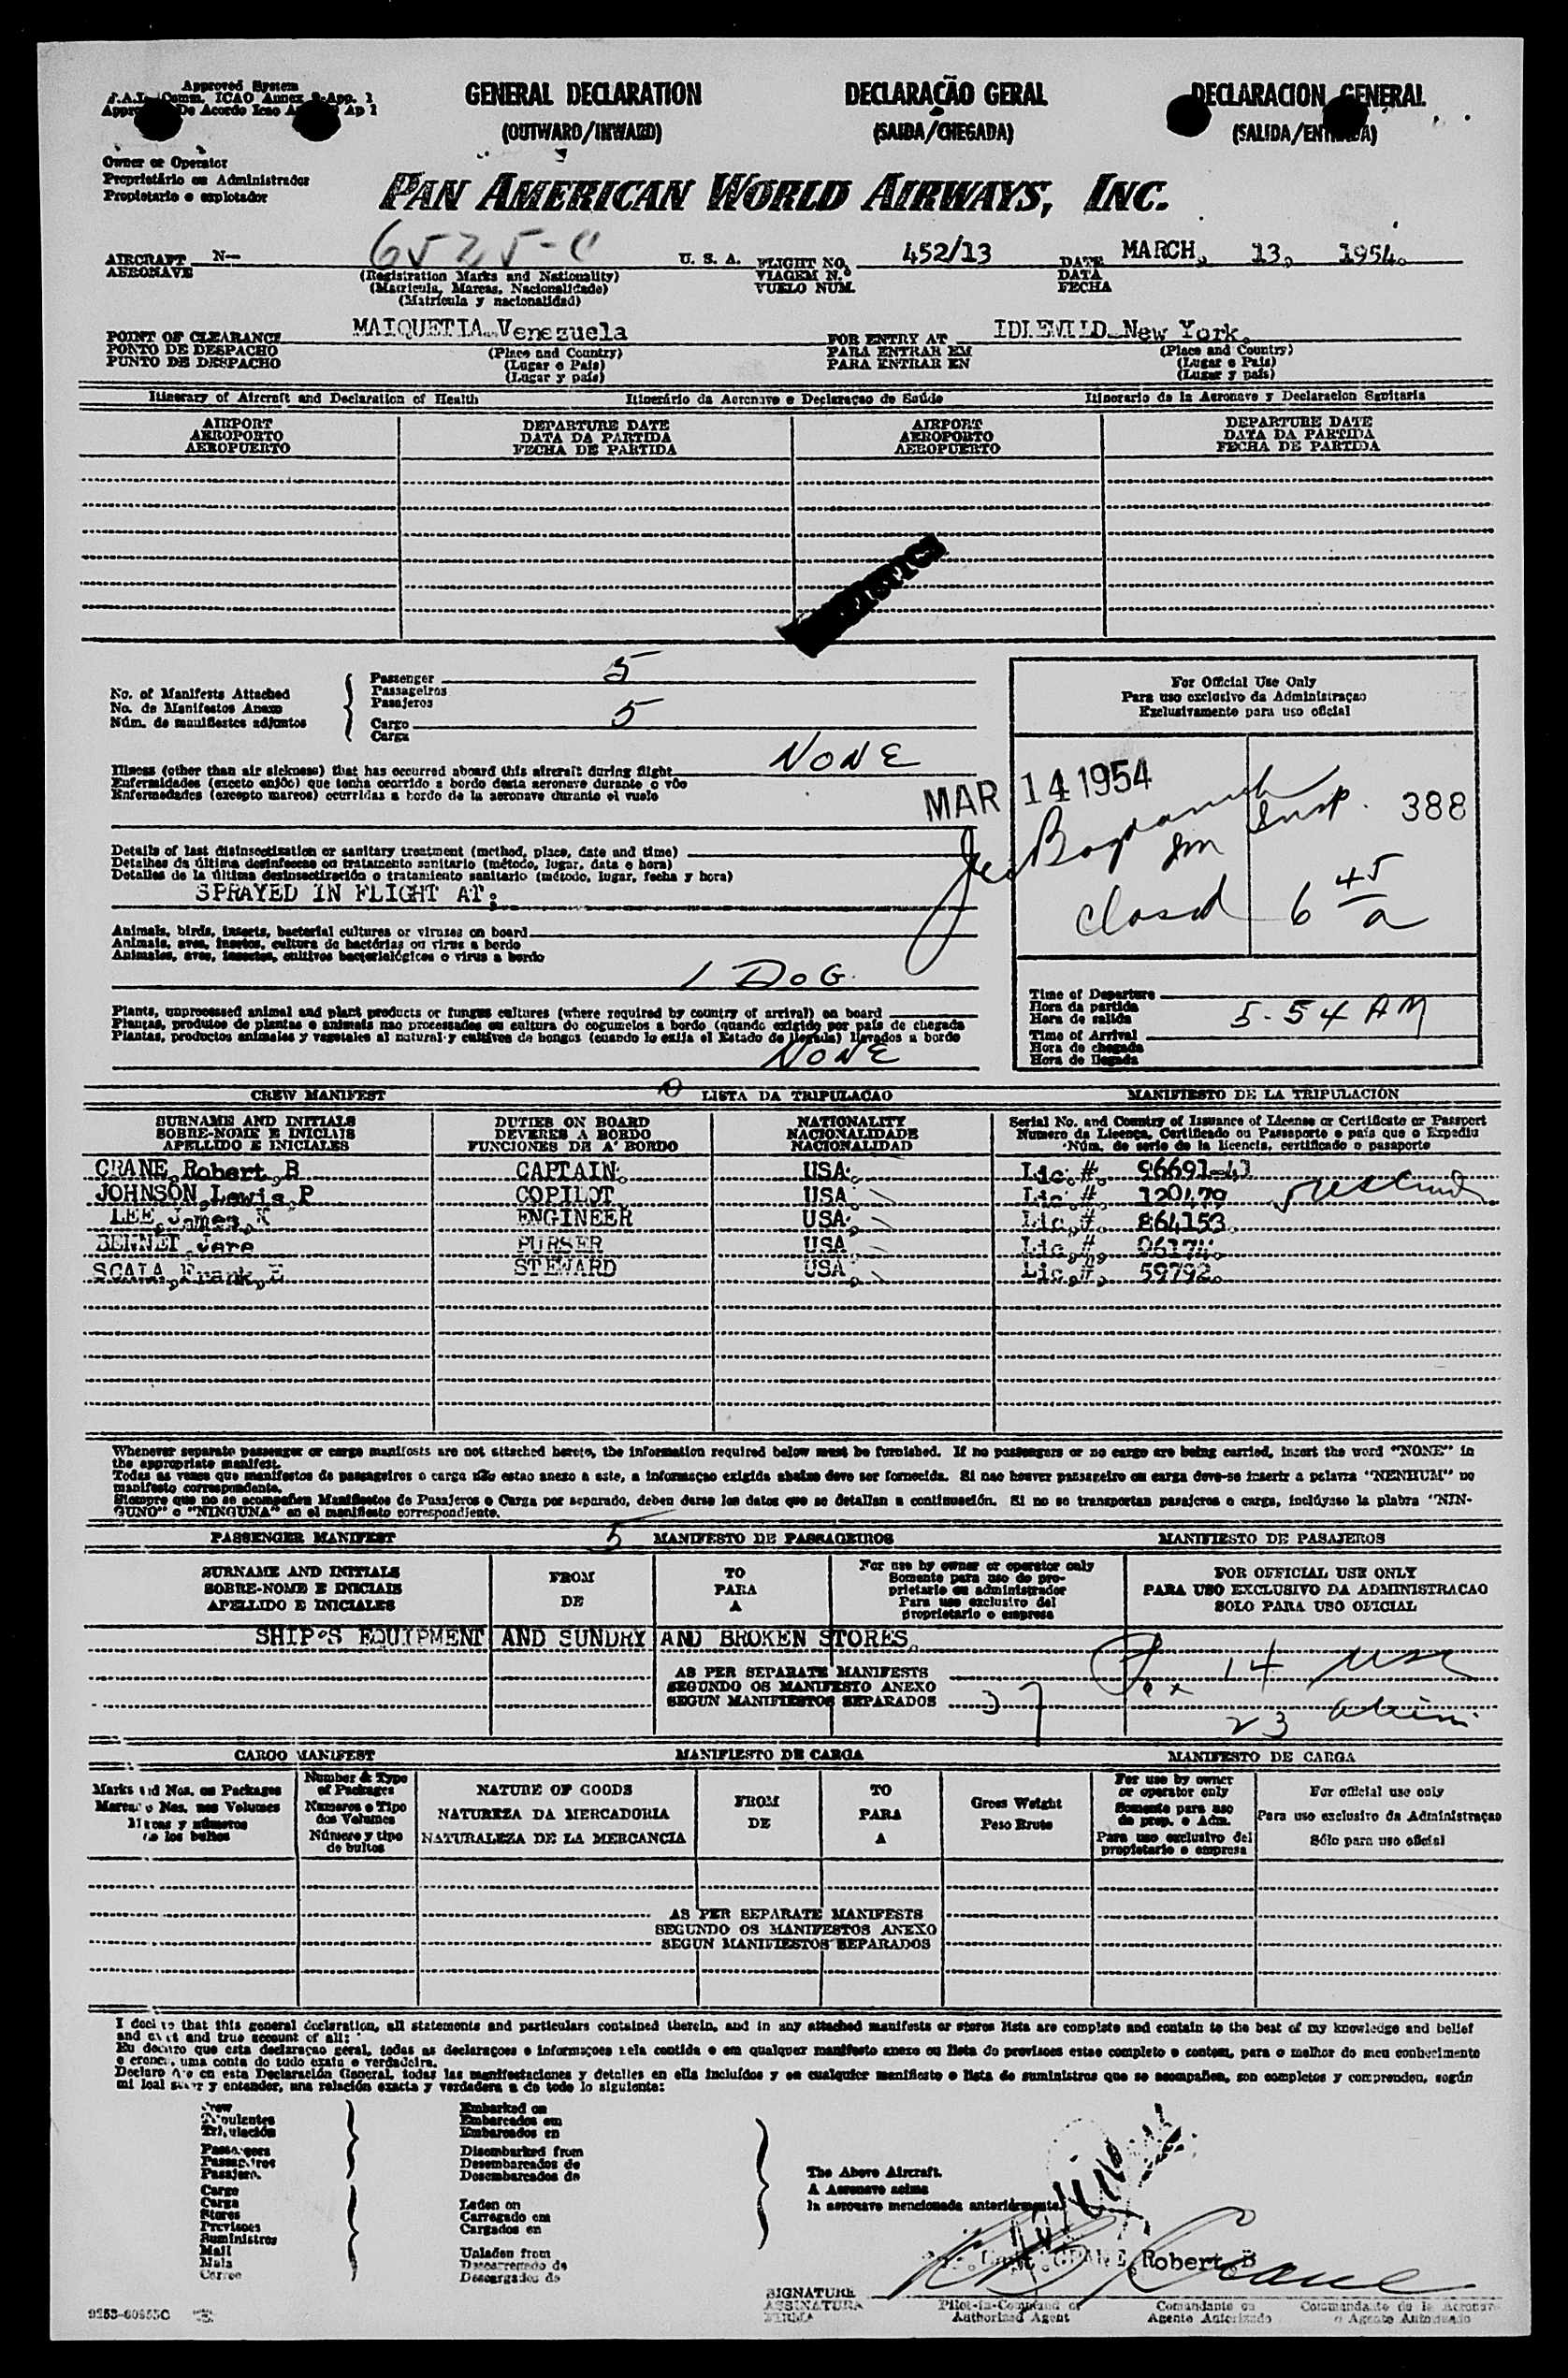 Approved System
Comm. ICAO Annex 9-App. 1
De Acordo Icao Ap 1
GENERAL DECLARATION
(OUTWARD/INWARD)
DECLARAÇÃO GERAL
(SAIDA/CHEGADA)
DECLARACION GENERAL
(SALIDA/ENTRADA)
Owner or Operator
Proprietário ou Administrador
Propietario o explotador
PAN AMERICAN WORLD AIRWAYS, INC.
AIRCRAFT N— 6525-C U. S. A. FLIGHT NO. 452/13 DATE MARCH, 13, 1954.
AERONAVE (Registration Marks and Nationality) VIAGEM N.º DATA
(Matricula, Marcas, Nacionalidade) VUELO NUM. FECHA
(Matrícula y nacionalidad)
POINT OF CLEARANCE MAIQUETIA Venezuela FOR ENTRY AT IDLEWILD New York.
PONTO DE DESPACHO (Place and Country) PARA ENTRAR EM (Place and Country)
PUNTO DE DESPACHO (Lugar o País) PARA ENTRAR EN (Lugar o País)
(Lugar y país) (Lugar y país)
Itinerary of Aircraft and Declaration of Health Itinerário da Aeronave e Declaraçao de Saúde Itinerario de la Aeronave y Declaracion Sanitaria
AIRPORT DEPARTURE DATE AIRPORT DEPARTURE DATE
AEROPORTO DATA DA PARTIDA AEROPORTO DATA DA PARTIDA
AEROPUERTO FECHA DE PARTIDA AEROPUERTO FECHA DE PARTIDA
No. of Manifests Attached
No. de Manifestos Anexo
Núm. de manifiestos adjuntos
Passenger 5
Passageiros
Pasajeros
Cargo 5
Carga
For Official Use Only
Para uso exclusivo da Administraçao
Exclusivamente para uso oficial
Illness (other than air sickness) that has occurred aboard this aircraft during flight NONE
Enfermidades (exceto enjôo) que tenha ocorrido a bordo desta aeronave durante o vôo
Enfermedades (excepto mareos) ocurridas a bordo de la aeronave durante el vuelo
MAR 14 1954
Insp. 388
closed 6 45 a
Details of last disinsectization or sanitary treatment (method, place, date and time)
Detalhes da última desinfeccao ou tratamento sanitario (método, lugar, data e hora)
Detalles de la última desinsectización o tratamiento sanitario (método, lugar, fecha y hora)
SPRAYED IN FLIGHT AT:
Animals, birds, insects, bacterial cultures or viruses on board
Animais, aves, insetos, cultura de bactérias ou virus a bordo
Animales, aves, insectos, cultivos bacteriológicos o virus a bordo
1 DOG.
Plants, unprocessed animal and plant products or fungus cultures (where required by country of arrival) on board
Plantas, produtos de plantas e animais nao processados ou cultura de cogumelos a bordo (quando exigido por país de chegada
Plantas, productos animales y vegetales al natural y cultivos de hongos (cuando lo exija el Estado de llegada) llevados a bordo
NONE
Time of Departure
Hora da partida
Hora de salida
5-54 AM
Time of Arrival
Hora de chegada
Hora de llegada
CREW MANIFEST LISTA DA TRIPULACAO MANIFIESTO DE LA TRIPULACIÓN
SURNAME AND INITIALS DUTIES ON BOARD NATIONALITY Serial No. and Country of Issuance of License or Certificate or Passport
SOBRE-NOME E INICIAIS DEVERES A BORDO NACIONALIDADE Numero da Licença, Certificado ou Passaporte e país que o Expediu
APELLIDO E INICIALES FUNCIONES DE A' BORDO NACIONALIDAD Núm. de serie de la licencia, certificado o pasaporte
CRANE, Robert, B CAPTAIN. USA. Lic. #. 96691-41
JOHNSON, Lewis, P COPILOT USA Lic. #. 120479
LEE, James, K ENGINEER USA. Lic. #. 864153.
BENNET Jere PURSER USA Lic. #.
SCALA, Frank, E STEWARD USA. Lic. #. 59792.
Whenever separate passenger or cargo manifests are not attached hereto, the information required below must be furnished. If no passengers or no cargo are being carried, insert the word "NONE" in
the appropriate manifest.
Todas as vezes que manifestos de passageiros o carga não estao anexo a este, a informaçao exigida abaixo deve ser fornecida. Si nao houver passageiro ou carga deve-se inserir a palavra "NENHUM" no
manifesto correspondente.
Siempre que no se acompañen Manifiestos de Pasajeros o Carga por separado, deben darse los datos que se detallan a continuación. Si no se transportan pasajeros o carga, inclúyase la plabra "NIN-
GUNO" o "NINGUNA" en el manifiesto correspondiente.
PASSENGER MANIFEST 5 MANIFESTO DE PASSAGEIROS MANIFIESTO DE PASAJEROS
SURNAME AND INITIALS
SOBRE-NOME E INICIAIS
APELLIDO E INICIALES
FROM
DE
TO
PARA
A
For use by owner or operator only
Somente para uso do pro-
prietario ou administrador
Para uso exclusivo del
propietario o empresa
FOR OFFICIAL USE ONLY
PARA USO EXCLUSIVO DA ADMINISTRACAO
SOLO PARA USO OFICIAL
SHIP'S EQUIPMENT AND SUNDRY AND BROKEN STORES.
AS PER SEPARATE MANIFESTS
SEGUNDO OS MANIFESTO ANEXO
SEGUN MANIFIESTOS SEPARADOS 37
14
23
CARGO MANIFEST MANIFIESTO DE CARGA MANIFESTO DE CARGA
Marks and Nos. on Packages
Marcas o Nos. nos Volumes
Marcas y números
de los bultos
Number & Type
of Packages
Numeros e Tipo
dos Volumes
Número y tipo
de bultos
NATURE OF GOODS
NATUREZA DA MERCADORIA
NATURALEZA DE LA MERCANCIA
FROM
DE
TO
PARA
A
Gross Weight
Peso Bruto
For use by owner
or operator only
Somente para uso
do prop. o Adm.
Para uso exclusivo del
propietario o empresa
For official use only
Para uso exclusivo da Administraçao
Sólo para uso oficial
AS PER SEPARATE MANIFESTS
SEGUNDO OS MANIFESTOS ANEXO
SEGUN MANIFIESTOS SEPARADOS
I declare that this general declaration, all statements and particulars contained therein, and in any attached manifests or stores lists are complete and contain to the best of my knowledge and belief
and exact and true account of all:
Eu declaro que esta declaraçao geral, todas as declaraçoes e informaçoes nela contida e em qualquer manifesto anexo ou lista de provisoes estao completo e contem, para o melhor do meu conhecimento
e crença, uma conta do tudo exata e verdadeira.
Declaro que en esta Declaración General, todas las manifestaciones y detalles en ella incluídos y en cualquier manifiesto o lista de suministros que se acompañen, son completos y comprenden, según
mi leal saber y entender, una relación exacta y verdadera a de todo lo siguiente:
Crew
Tripulantes
Tripulación
Passengers
Passageiros
Pasajeros
Cargo
Carga
Stores
Provisoes
Suministros
Mail
Mala
Correo
Embarked on
Embarcados em
Embarcados en
Disembarked from
Desembarcados de
Desembarcados de
Laden on
Carregado em
Cargados en
Unladen from
Descarregado de
Descargados de
The Above Aircraft.
A Aeronave acima
la aeronave mencionada anteriormente.
CRANE, Robert, B
SIGNATURE
ASSINATURA
FIRMA
Pilot-in-Command or
Authorized Agent
Comandante ou
Agente Autorizado
Commandante de la Aeronave
o Agente Autorizado